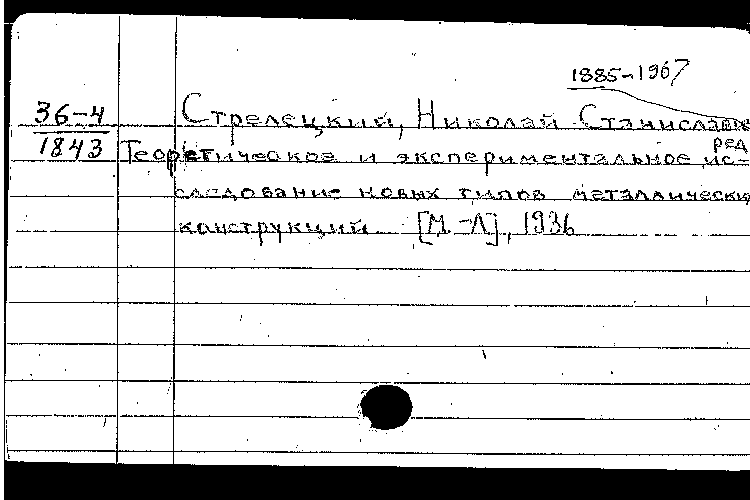 1885-1967
36-4 Стрелецкий, Николай Станиславов
ред
1843 Теоретическое и экспериментальное ис-
следование новых типов металлически
конструкций [М.-Л], 1936